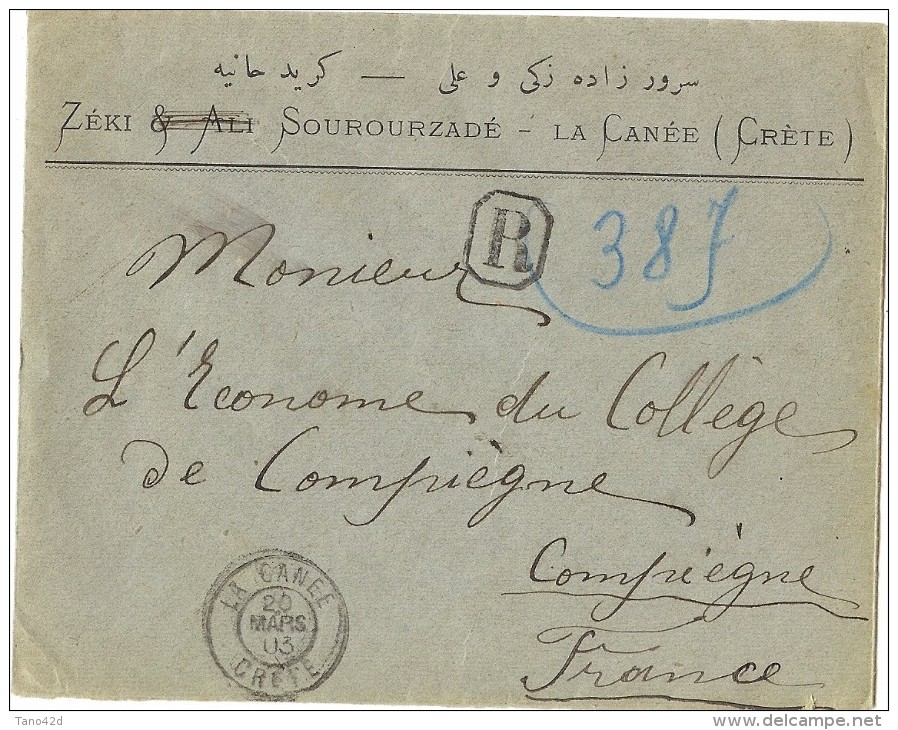 سرور زاده زكی و علی — كريد حانيه
ZÉKI & ALI SOUROURZADÉ - LA CANÉE (CRÈTE)
R 387
Monieur
L'Econome du Collège
de Compiègne
Compiègne
France
LA CANÉE
20
MARS
03
CRÈTE
Tano42d
www.delcampe.net